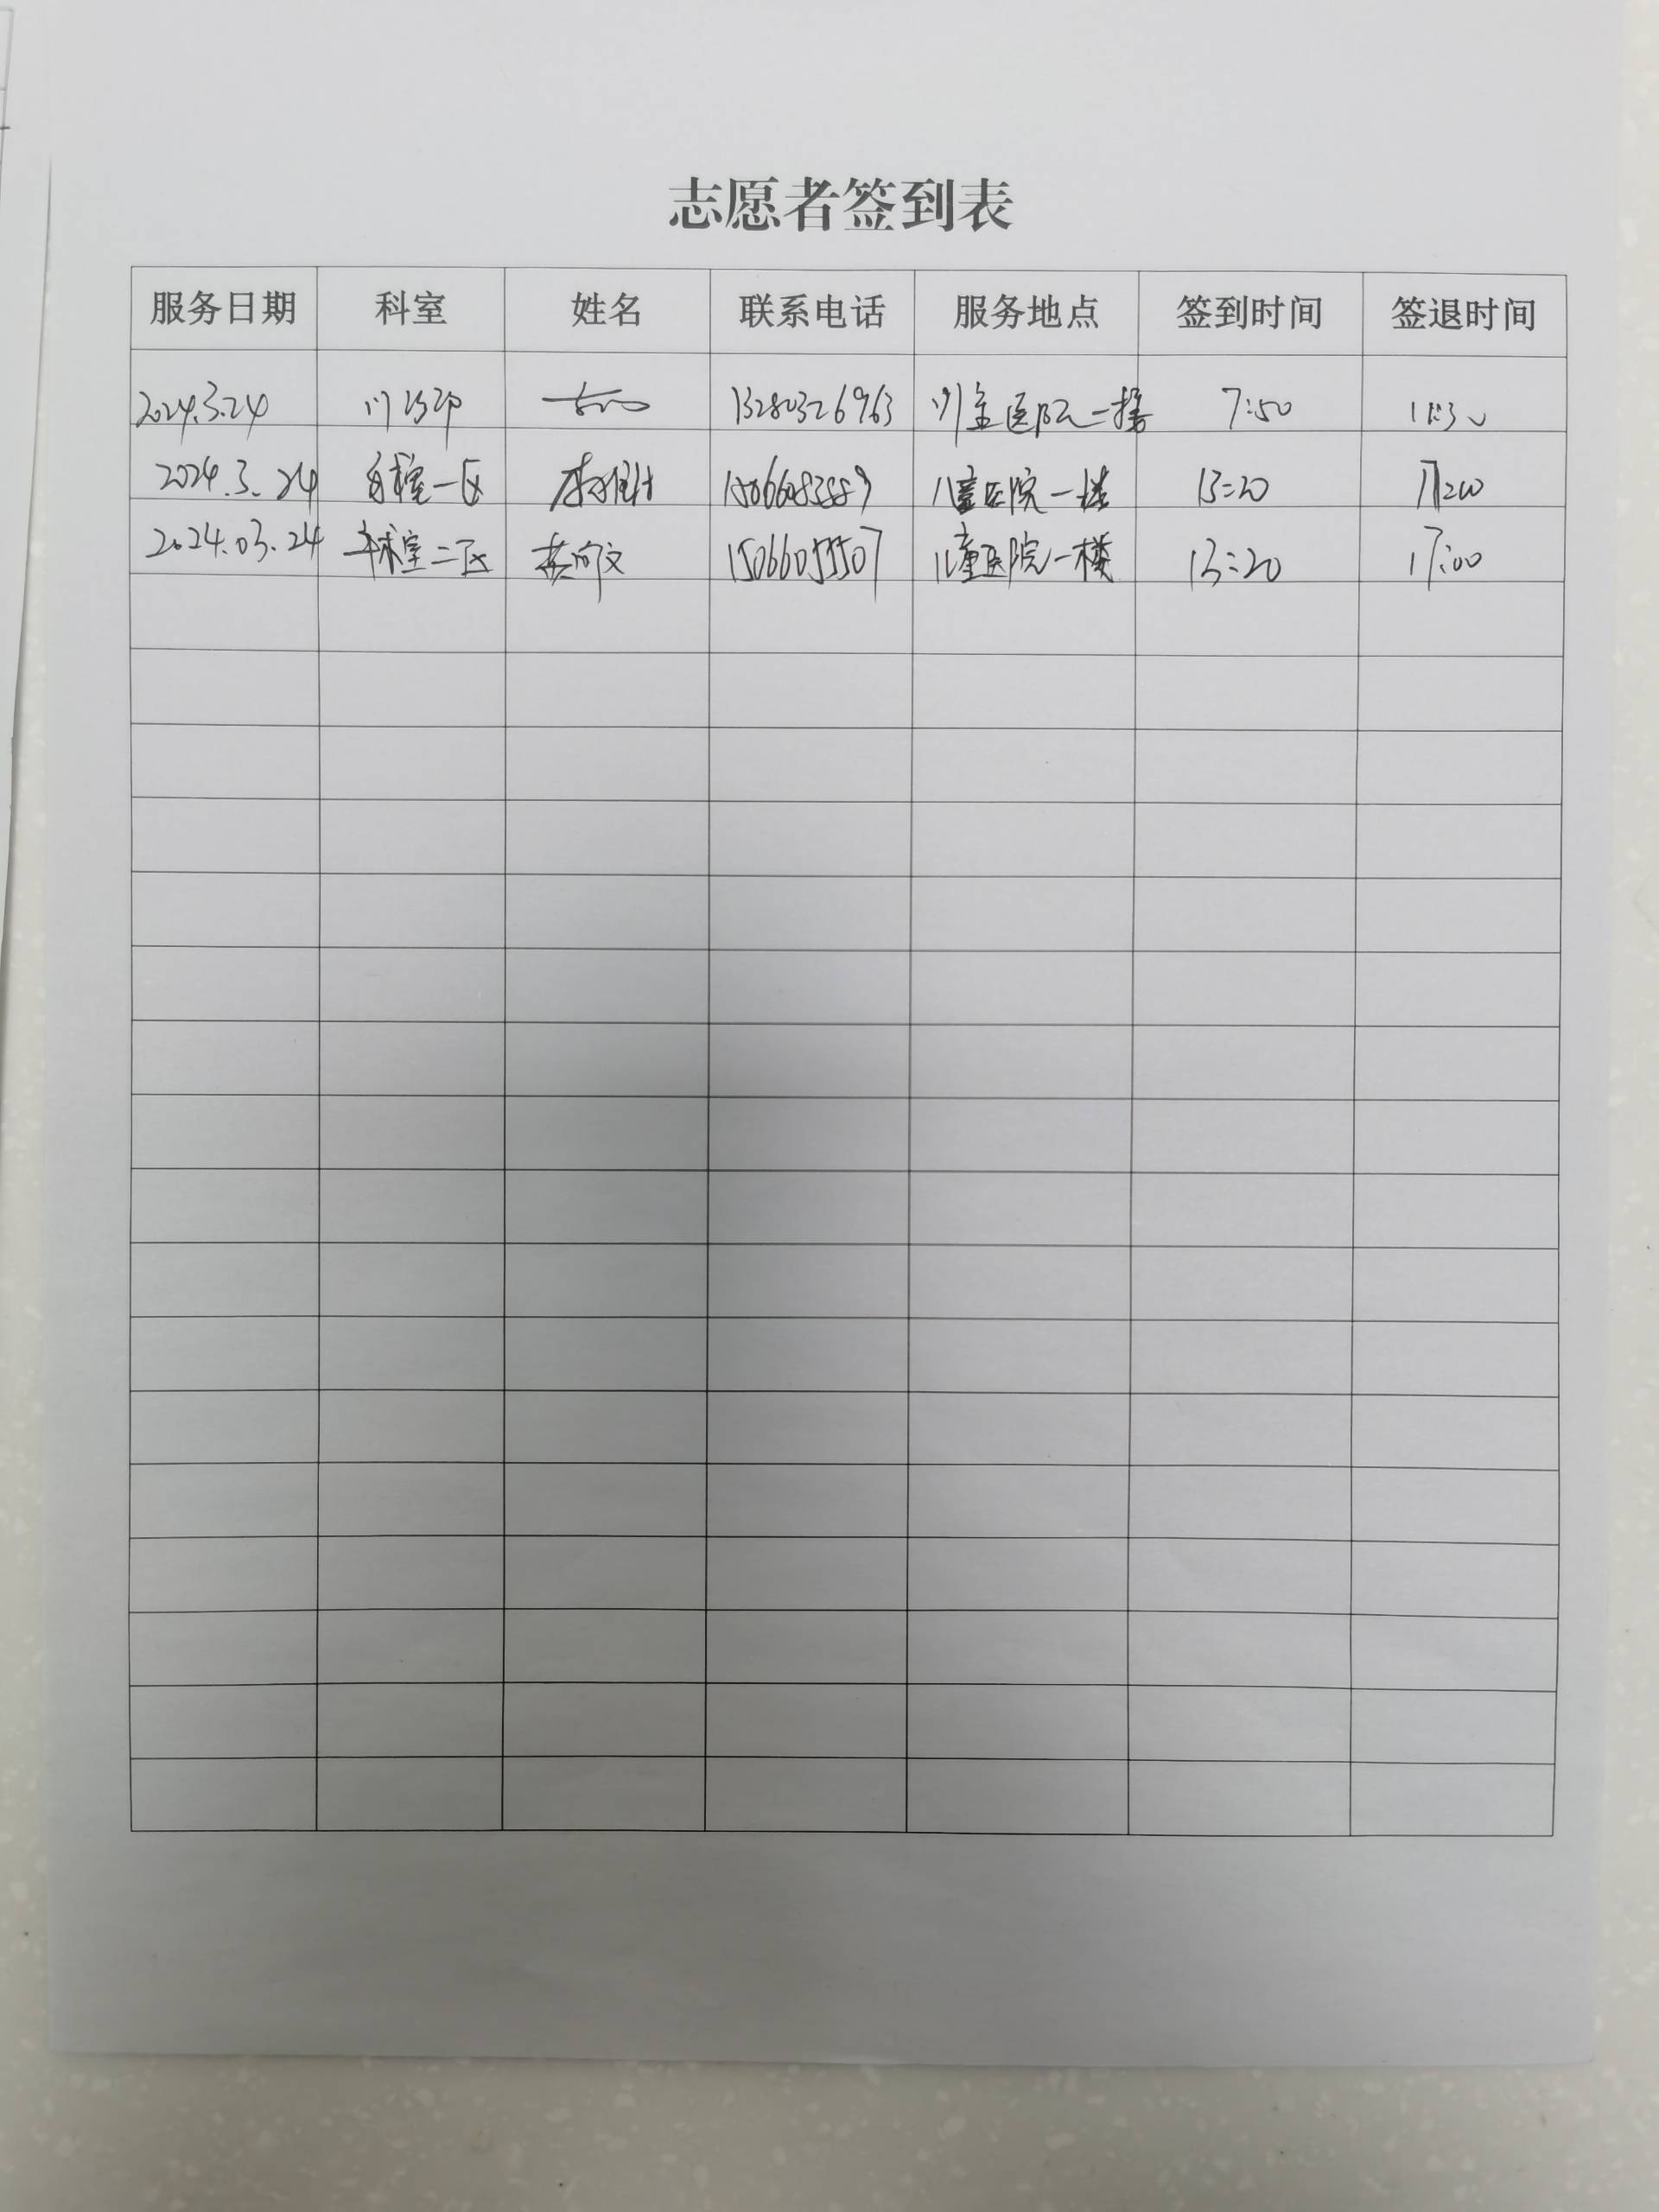 志愿者签到表
服务日期 科室 姓名 联系电话 服务地点 签到时间 签退时间
2024.3.24 门诊部 13280326963 儿童医院一楼 7:50 11:30
2024.3.24 一区 儿童医院一楼 13:20
2024.03.24 手术室二区 15066055507 儿童医院一楼 13:20 17:00